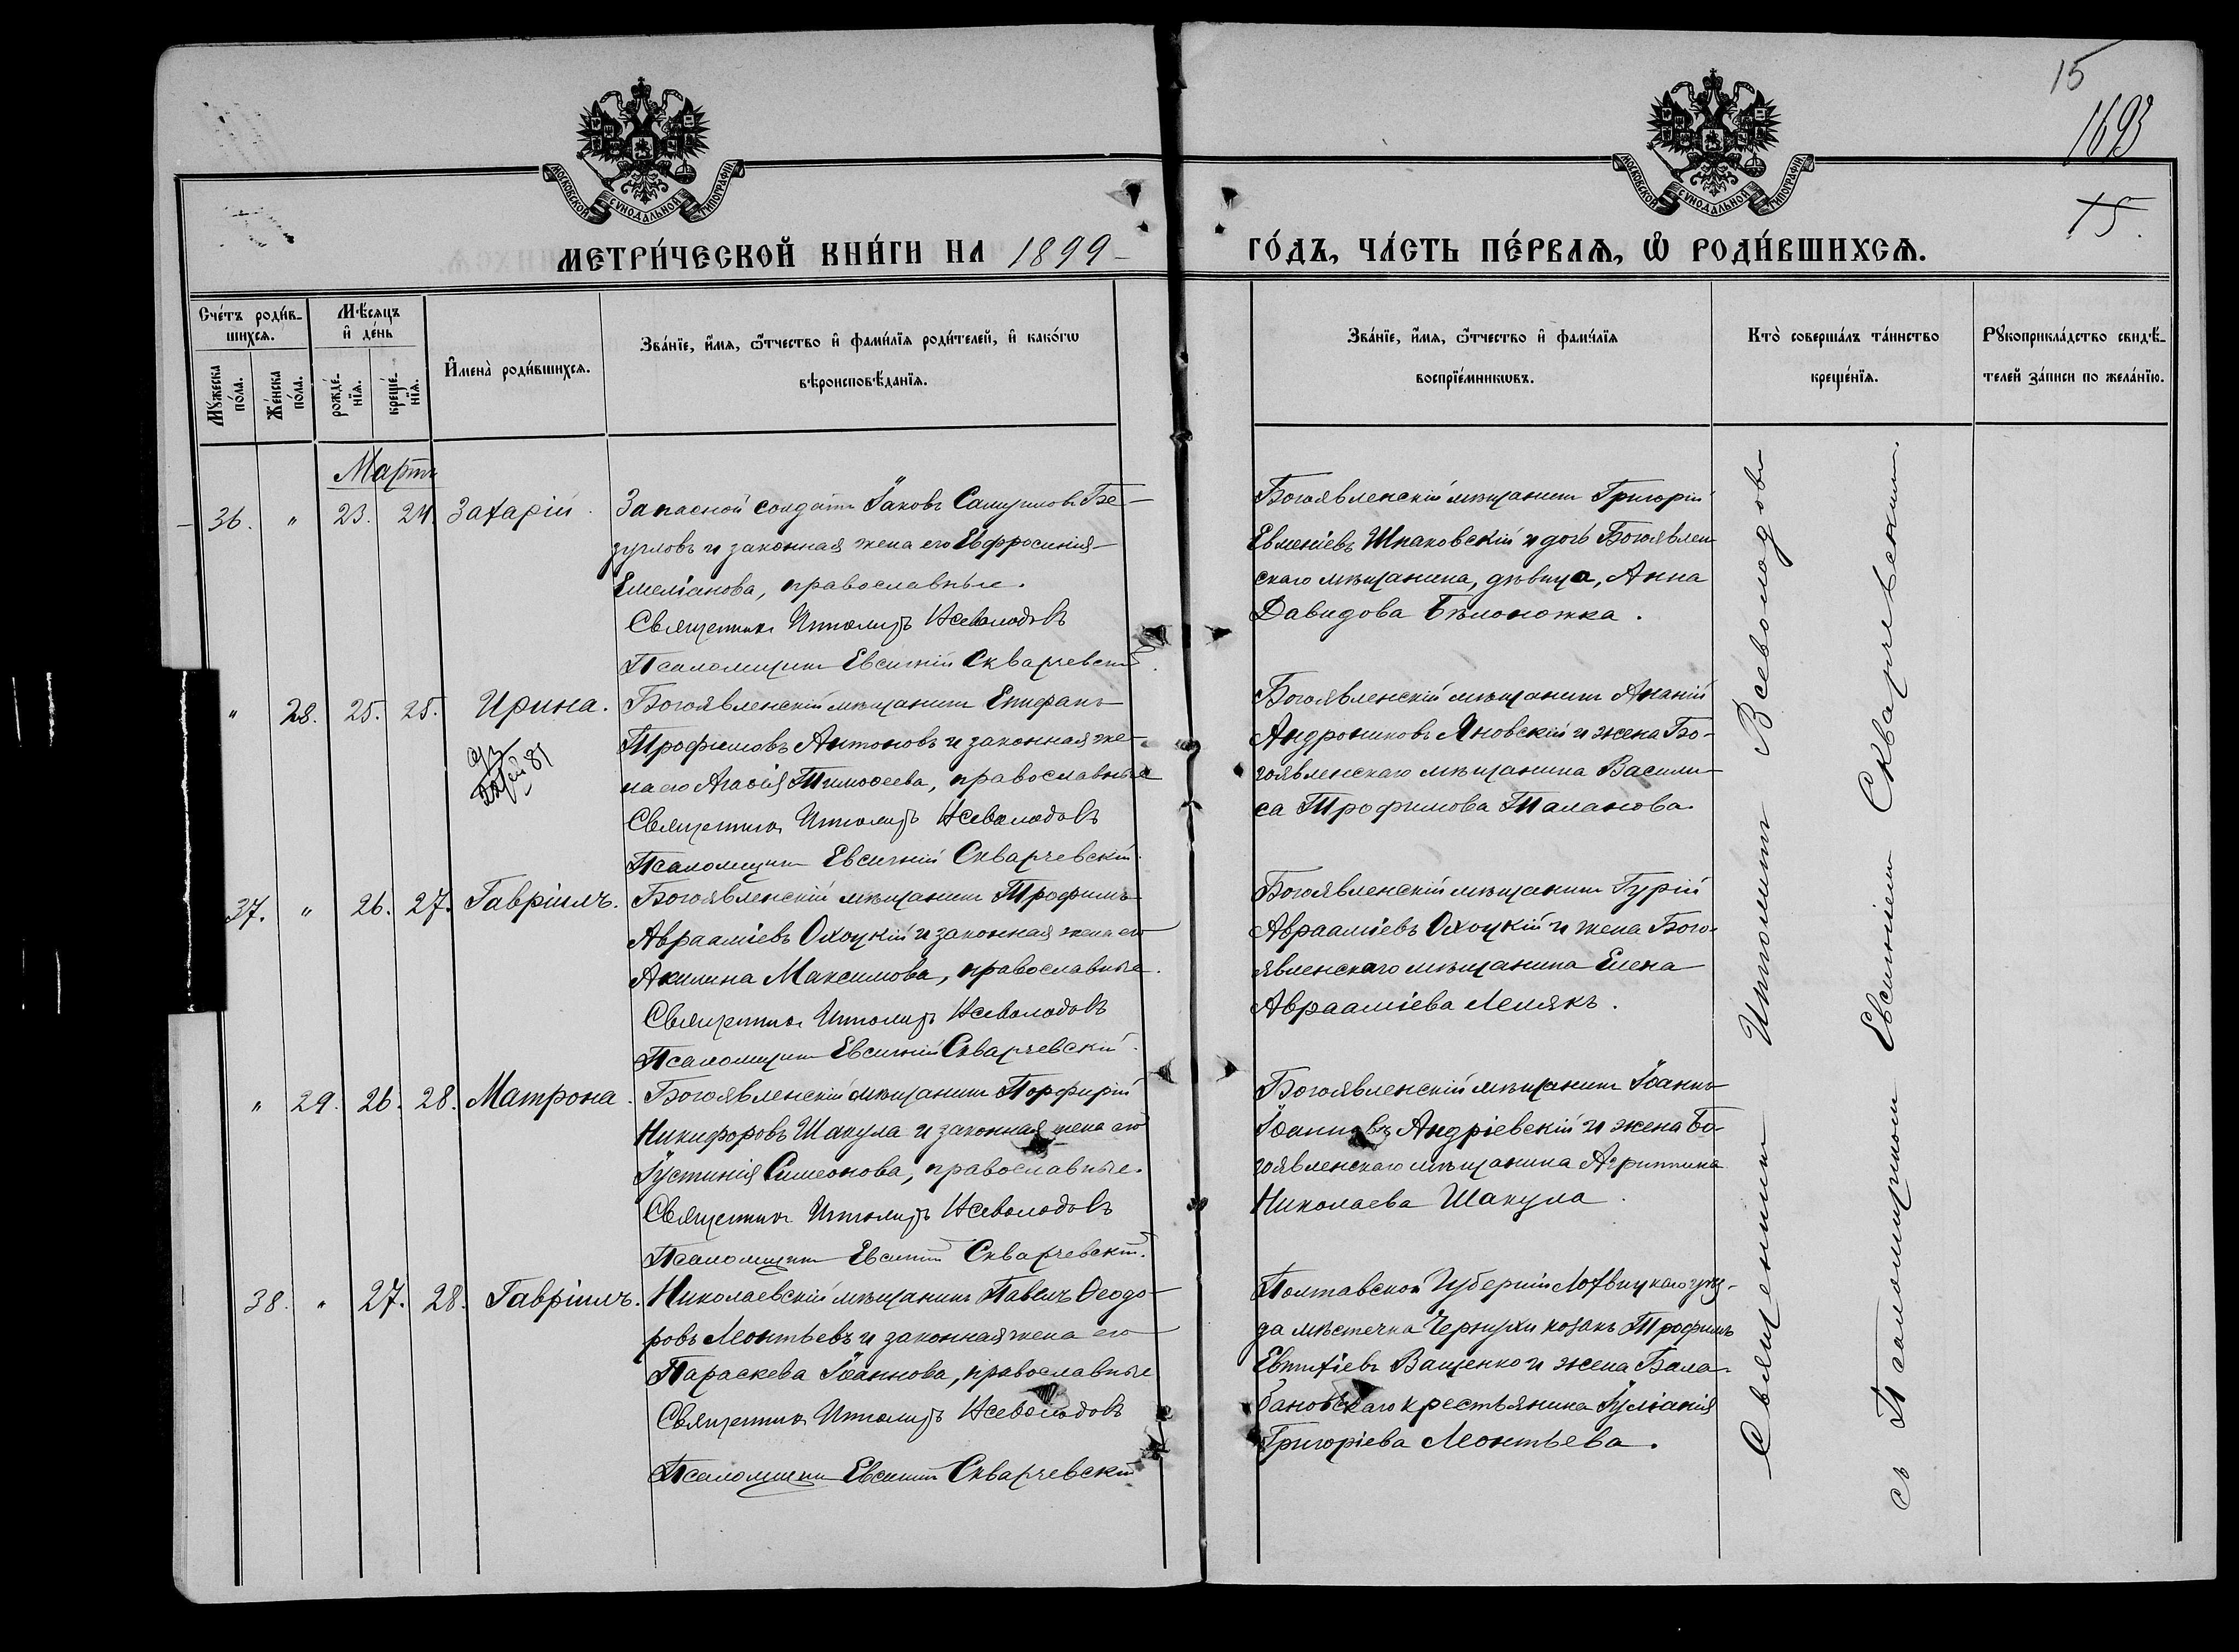 15
1693
15.
МОСКОВСКОЙ СѴНОДАЛЬНОЙ ТИПОГРАФІИ
МОСКОВСКОЙ СѴНОДАЛЬНОЙ ТИПОГРАФІИ
МЕТРИ́ЧЕСКОЙ КНИ́ГИ НА 1899 ГО́ДЪ, ЧА́СТЬ ПЕ́РВАѦ, Ѡ҆ РОДИ́ВШИХСѦ.
Сче́тъ роди́в-
шихсѧ.
Мꙋ́жеска по́ла.
Же́нска по́ла.
Мѣ́сѧцъ
и҆ де́нь
рожде́-
нїѧ.
креще́-
нїѧ.
И҆мена̀ роди́вшихсѧ.
Зва́нїе, и҆́мѧ, ѻ҆́тчество и҆ фами́лїѧ роди́телей, и҆ како́гѡ
вѣроисповѣ́данїѧ.
Зва́нїе, и҆́мѧ, ѻ҆́тчество и҆ фами́лїѧ
воспрїе́мникѡвъ.
Кто̀ соверша́лъ та́инство
креще́нїѧ.
Рꙋкоприкла́дство свидѣ́-
телей за́писи по жела́нїю.
Мартъ
36. " 23. 24. Захарій.
Запасной солдатъ Іаковъ Самуиловъ Бе-
зугловъ и законная жена его Евфросинія
Емеліанова, православные.
Священникъ Ипполитъ Всеволодовъ
Псаломщикъ Евсигній Скварчевскій.
Богоявленскій мѣщанинъ Григорій
Евменіевъ Шпаковскій и дочь Богоявлен-
скаго мѣщанина, дѣвица, Анна
Давидова Бѣлоножка.
" 28. 25. 25. Ирина.
81
Богоявленскій мѣщанинъ Епифанъ
Трофимовъ Антоновъ и законная же-
на его Агаѳія Тимоѳеева, православные
Священникъ Ипполитъ Всеволодовъ
Псаломщикъ Евсигній Скварчевскій.
Богоявленскій мѣщанинъ Ананій
Андрониковъ Яновскій и жена Бо-
гоявленскаго мѣщанина Васили-
са Трофимова Таланова.
37. " 26. 27. Гавріилъ.
Богоявленскій мѣщанинъ Трофимъ
Авраамiевъ Охоцкій и законная жена его
Акилина Максимова, православные.
Священникъ Ипполитъ Всеволодовъ
Псаломщикъ Евсигній Скварчевскій.
Богоявленскій мѣщанинъ Гурій
Авраамiевъ Охоцкій и жена Бого-
явленскаго мѣщанина Елена
Авраамiева Лемякъ.
" 29. 26. 28. Матрона.
Богоявленскій мѣщанинъ Порфирій
Никифоровъ Шакула и законная жена его
Іустинія Симеонова, православные.
Священникъ Ипполитъ Всеволодовъ
Псаломщикъ Евсигній Скварчевскій.
Богоявленскій мѣщанинъ Іоаннъ
Іоанновъ Андріевскій и жена Бо-
гоявленскаго мѣщанина Агриппина
Николаева Шакула.
38. " 27. 28. Гавріилъ.
Николаевскій мѣщанинъ Павелъ Ѳеодо-
ровъ Леонтьевъ и законная жена его
Параскева Іоаннова, православные
Священникъ Ипполитъ Всеволодовъ
Псаломщикъ Евсигній Скварчевскій
Полтавской Губерніи Лохвицкаго уѣз-
да мѣстечка Чернухи козакъ Трофимъ
Евтихіевъ Ващенко и жена Бала-
бановскаго крестьянина Іуліанія
Григоріева Леонтьева.
Священникъ Ипполитъ Всеволодовъ
съ Псаломщикомъ Евсигніемъ Скварчевскимъ.